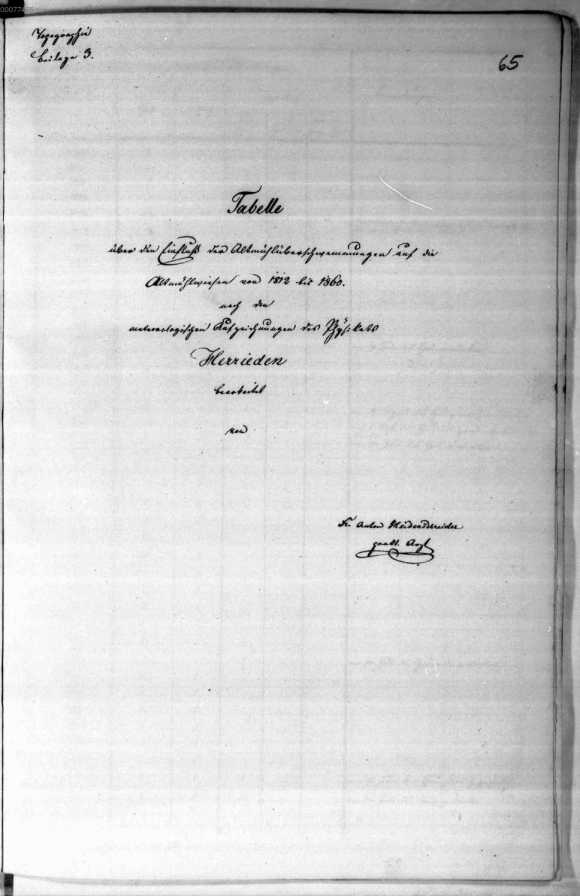 00077
Topographie
Beilage 3.
65
Tabelle
über den Einfluß der Altmühlüberschwemmungen auf die
Altmühlwiesen von 1812 bis 1860.
nach den
meteorologischen Aufzeichnungen des Physikats
Herrieden
bearbeitet
von
Dr. Anton
prakt. Arzt